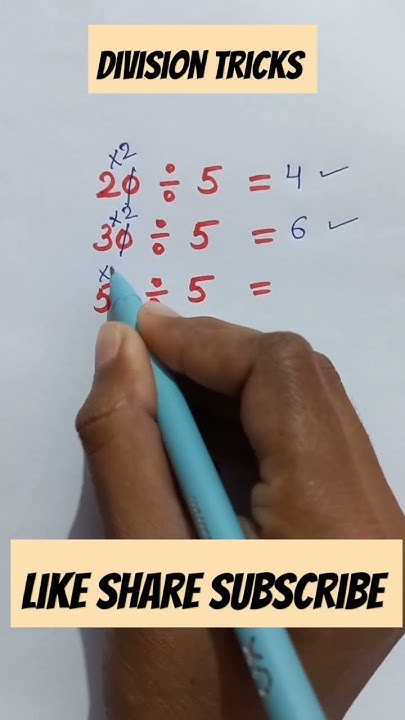 DIVISION TRICKS
x2
20 ÷ 5 = 4 ✓
x2
30 ÷ 5 = 6 ✓
x
5 ÷ 5 =
LIKE SHARE SUBSCRIBE